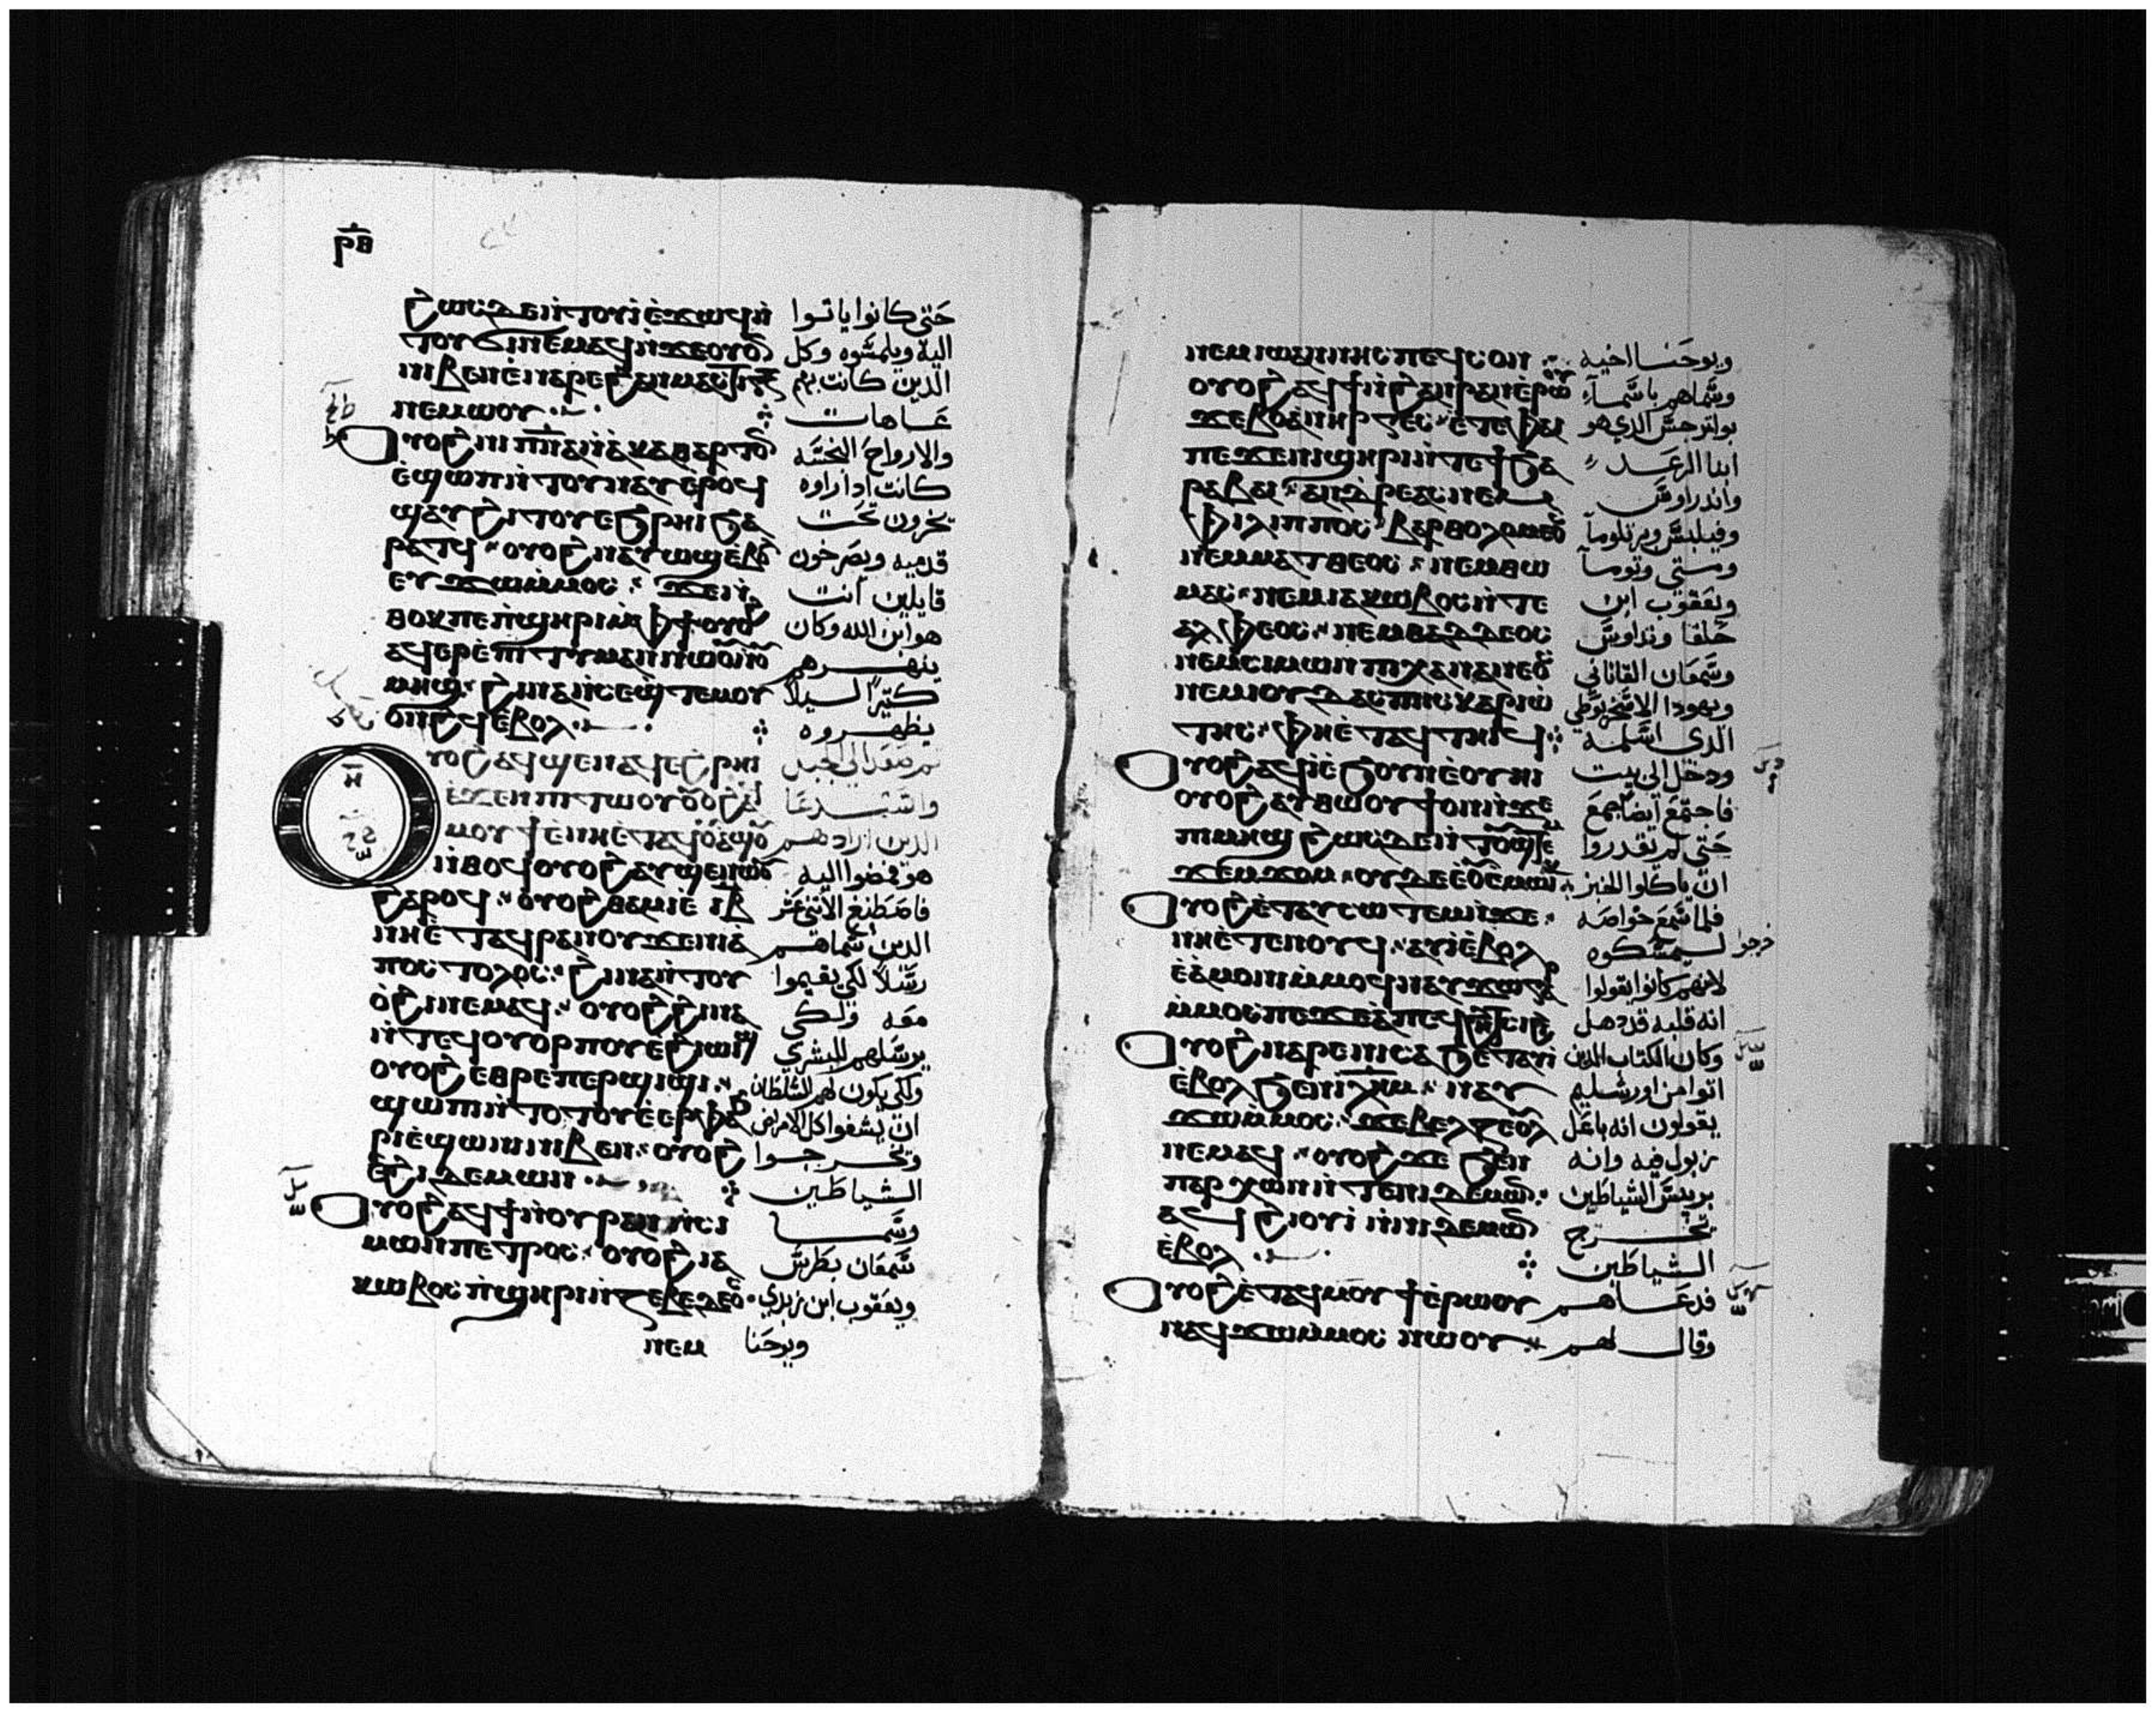 ⲣⲑ
ϩⲱⲥⲇⲉⲛ̀ⲧⲟⲩⲓ̀ⲉ̀ϫⲱϥⲛ̀ حتى كانوا ياتوا
ⲧⲟⲩϭⲓⲛⲉⲙⲁϥⲛ̀ϫⲉⲟⲩⲟ̅ⲛ اليه ويلمسوه وكل
ⲛⲓⲃⲉⲛⲉ̀ⲛⲁⲣⲉϩⲁⲛⲙⲁⲥϯⲅⲝ الدين كانت بهم
ⲛⲉⲙⲱⲟⲩ عاهات
ⲟⲩⲟϩⲛⲓⲡ̅ⲛ̅ⲁ̅ⲛ̀ⲁⲕⲁⲑⲁⲣⲧⲟⲛ والارواح النجسه
ⲉ̀ϣⲱⲡⲛ̀ⲧⲟⲩⲛⲁⲩⲉ̀ⲣⲟϥ كانت ادا راوه
ϣⲁⲩϩⲓⲧⲟⲩⲉϧⲣⲏⲓϧⲁ يخرون تحت
ⲣⲁⲧϥ ⲟⲩⲟϩⲛⲁⲩⲱϣⲉⲃⲟⲗ قدميه ويصرخون
ⲉⲩϫⲱⲙ̀ⲙⲟⲥ ϫⲉⲛ̀ قايلين انت
ⲑⲟⲕⲡⲉⲡϣⲏⲣⲓⲙ̀ⲫϯⲟⲩⲟϩ هو ابن الله وكان
ⲁϥⲉⲣⲉ̀ⲡⲓⲧⲓⲙⲁⲛⲛⲱⲟⲩⲛⲟⲩ ينهرهم
ⲙⲏϣ ϩⲓⲛⲁⲛ̀ⲥⲉϣ̀ⲧⲉⲙⲟⲩ كتيرا ليلا
ⲟⲛϩϥⲉ̀ⲃⲟⲗ يظهروه
ⲟⲩⲟϩⲁϥϣⲉⲛⲁϥⲉ̀ϩⲣⲏⲓ تم صعد الي الجبل
ⲉ̀ϫⲉⲛⲡⲓⲧⲱⲟⲩⲟⲩⲟϩⲁϥ واستدعا
ⲙⲟⲩϯⲉ̀ⲛⲏⲉ̀ⲧⲁϥⲟⲩⲁϣⲟⲩ الدين ارادهم
ⲛ̀ⲑⲟϥⲟⲩⲟϩⲁⲩϣⲉⲛⲱⲟⲩ هو فمضوا اليه
ϩⲁⲣⲟϥ ⲟⲩⲟϩⲁϥⲑⲁⲙⲓⲉ̀ ⲓⲃ فاصطنع الاتني عشر
ⲛⲏⲉ̀ⲧⲁϥϯⲣⲁⲛⲟⲩϫⲉⲛⲓⲁ̀ الدين سماهم
ⲡⲟⲥⲧⲟⲗⲟⲥ ϩⲓⲛⲁⲛ̀ⲧⲟⲩ رسلا لكي يقيموا
ⲟ̀ϩⲓⲛⲉⲙⲁϥ ⲟⲩⲟϩϩⲓⲛⲁ معه ولكي
ⲛ̀ⲧⲉϥⲟⲩⲟⲣⲡⲟⲩⲉϩⲓⲱⲓϣ يرسلهم للبشري
ⲟⲩⲟϩⲉⲑⲣⲉⲡⲉⲣϣⲓϣⲓ ولكي يكون لهم السلطان
ϣⲱⲡⲓⲛ̀ⲧⲟⲧⲟⲩⲉ̀ⲉⲣⲫⲁϩ ان يشفوا كل الامراض
ⲣⲓⲉ̀ϣⲱⲛⲓⲛⲓⲃⲉⲛ ⲟⲩⲟϩ ويخرجوا
ⲉ̀ϩⲓⲇⲉⲙⲱⲛ الشياطين
ⲟⲩⲟϩⲁϥϯⲛ̀ⲟⲩⲣⲁⲛⲛ̀ⲥⲓ وسما
ⲙⲱⲛⲡⲉⲧⲣⲟⲥ ⲟⲩⲟϩⲓⲁ سمعان بطرس
ⲕⲱⲃⲟⲥⲡ̀ϣⲏⲣⲓⲛ̀ⲍⲉⲃⲉⲇⲉⲟⲥ ويعقوب ابن زبدي
ⲛⲉⲙ ويوحنا
ⲛⲉⲙⲓⲱⲁⲛⲛⲏⲥⲡⲉϥⲥⲟⲛ ويوحنا اخيه
ⲟⲩⲟϩⲁϥϯⲛ̀ϩⲁⲛⲣⲁⲛⲉ̀ⲣⲱⲟⲩ وسماهم باسماء
ϫⲉⲃⲟⲁ̀ⲛⲏⲣⲅⲉⲥ ⲉ̀ⲧⲉⲫⲁⲓ بوانرجس الدي هو
ⲡⲉϫⲉⲛⲓϣⲏⲣⲓⲛ̀ⲧⲉϯϧⲁ ابنا الرعد
ⲣⲁⲃⲁⲓ ⲁⲛⲇⲣⲉⲁⲥⲛⲉⲙ واندراوس
ⲫⲓⲗⲓⲡⲡⲟⲥ ⲃⲁⲣⲑⲟⲗⲟⲙⲉⲟⲥ وفيلبس وبرتلوما
ⲛⲉⲙⲙⲁⲧⲑⲉⲟⲥ ⲛⲉⲙⲑⲱ ومتي وتوما
ⲙⲁⲥ ⲛⲉⲙⲓⲁⲕⲱⲃⲟⲥⲛ̀ⲧⲉ ويعقوب ابن
ⲁⲗⲫⲉⲟⲥ ⲛⲉⲙⲑⲁⲇⲇⲉⲟⲥ حلفا وتداوس
ⲛⲉⲙⲥⲓⲙⲱⲛⲡⲓⲭⲁⲛⲁⲛⲉⲟⲥ وسمعان القاناني
ⲛⲉⲙⲓⲟⲩⲇⲁⲥⲡⲓⲥⲕⲁⲣⲓⲱ ويهودا الاسخريوطي
ⲧⲏⲥ ⲫⲏⲉ̀ⲧⲁϥⲧⲏⲓϥ الدي اسلمه
ⲟⲩⲟϩⲁϥⲓ̀ⲉ̀ϧⲟⲩⲛⲉ̀ⲟⲩⲏⲓ ودخل الي بيت
ⲟⲩⲟϩⲁⲩⲑⲱⲟⲩϯⲟⲛⲛ̀ϫⲉ فاجتمع ايضا جمع
ⲡⲓⲙⲏϣ ϩⲱⲥⲇⲉⲛ̀ⲧⲟⲩϣⲧⲉⲙ حتي لم يقدروا
ϫⲉⲙϫⲟⲙ ⲟⲩⲇⲉⲉ̀ⲟⲩⲉⲙⲱⲓⲕ ان ياكلوا الخبز
ⲟⲩⲟϩⲉ̀ⲧⲁⲩⲥⲱⲧⲉⲙⲛ̀ϫⲉ فلما سمع خواصه
ⲛⲏⲉ̀ⲧⲉⲛⲟⲩϥ ⲁⲩⲓ̀ⲉ̀ⲃⲟⲗ خرجوا ليمسكوه
ⲉ̀ⲁ̀ⲙⲟⲛⲓⲙ̀ⲙⲟϥⲛⲁⲩϫⲱ لانهم كانوا يقولوا
ⲙ̀ⲙⲟⲥⲡⲉϫⲉⲁ̀ⲡⲉϥϩⲏⲧⲥⲓϩⲓ انه قلبه قد دهل
ⲟⲩⲟϩⲛⲁⲣⲉⲛⲓⲥⲁϧⲉ̀ⲧⲁⲩⲓ̀ وكان الكتاب الدين
ⲉ̀ⲃⲟⲗϧⲉⲛⲓⲗ̅ⲏ̅ⲙ̅ ⲛⲁⲩ اتوا من اورشليم
ϫⲱⲙ̀ⲙⲟⲥ ϫⲉⲃⲉⲗⲍⲉⲃⲟⲩⲗ يقولون انه باعل
ⲛⲉⲙⲁϥ ⲟⲩⲟϩϫⲉ ϧⲉⲛ زبول فيه وانه
ⲡⲁⲣⲭⲱⲛⲛ̀ⲧⲉⲛⲓⲇⲉⲙⲱⲛ بريس الشياطين
ⲁϥϩⲓⲟⲩⲓ̀ ⲛ̀ⲛⲓⲇⲉⲙⲱⲛ تخرج
ⲉ̀ⲃⲟⲗ الشياطين
ⲟⲩⲟϩⲉ̀ⲧⲁϥⲙⲟⲩϯⲉ̀ⲣⲱⲟⲩ فدعاهم
ⲛⲁϥϫⲱⲙ̀ⲙⲟⲥ ⲛⲱⲟⲩ وقال لهم